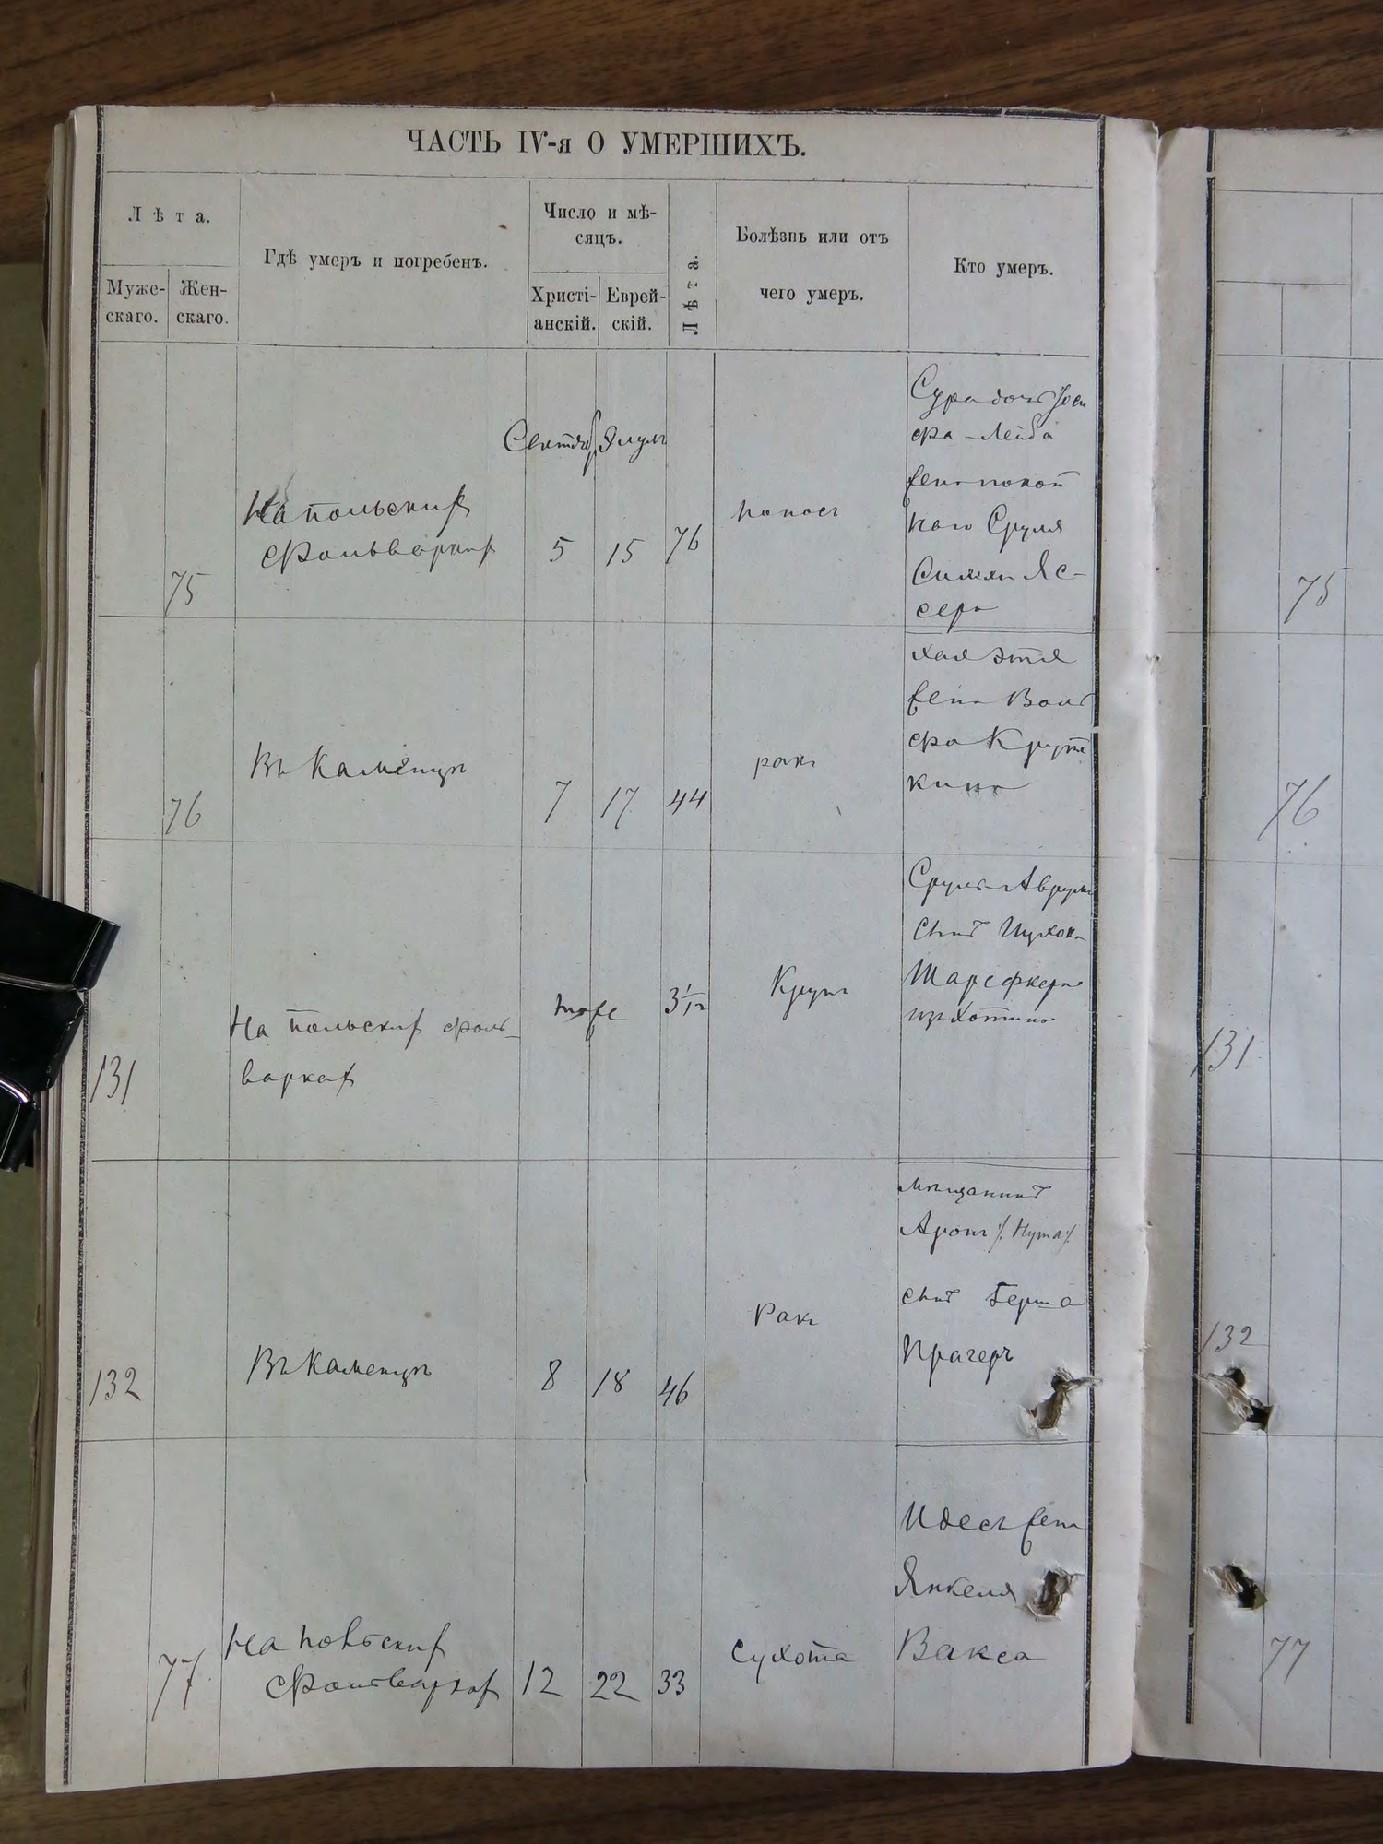 ЧАСТЬ IV-я О УМЕРШИХЪ.
Лѣта.
Муже-
скаго.
Жен-
скаго.
Гдѣ умеръ и погребенъ.
Число и мѣ-
сяцъ.
Христі-
анскій.
Еврей-
скій.
Лѣта.
Болѣзнь или отъ
чего умеръ.
Кто умеръ.
75
На польскихъ
фольваркахъ
Сентябр
Элулъ
5
15
76
поносъ
Сура дочь Іоси
фа-Лейба
жена покой
наго Сруля
Симхи Яс-
сера
75
76
Въ Каменцѣ
7
17
44
ракъ
Хая Этля
жена Воль
фа Крути
кина
76
131
На польскихъ фоль-
варкахъ
тоже
3½
Крупъ
Срулъ Аврумъ
сынъ
изъ Хотина
131
132
Въ Каменцѣ
8
18
46
Ракъ
мѣщанинъ
Аронъ /: Нута :/
сынъ Герша
Прагеръ
132
77
На польскихъ
фольваркахъ
12
22
33
Сухота
Идесъ жена
Янкеля
Вакса
77